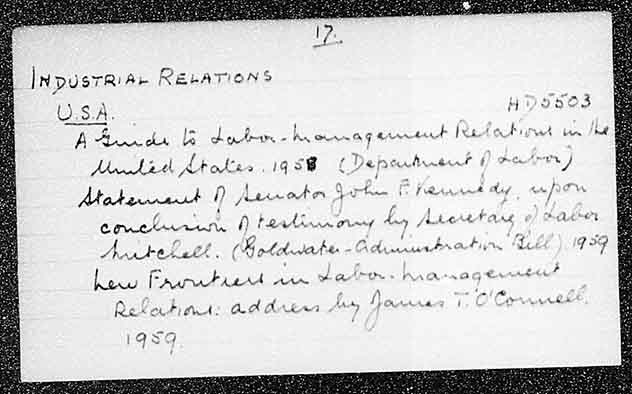 17.
INDUSTRIAL RELATIONS
U.S.A. HD5503
A Guide to Labor-Management Relations in the
United States. 1958 (Department of Labor)
Statement of Senator John F. Kennedy, upon
conclusion of testimony by Secretary of Labor
Mitchell. (Goldwater-Administration Bill) 1959
New Frontiers in Labor-Management
Relations: address by James T. O'Connell.
1959.